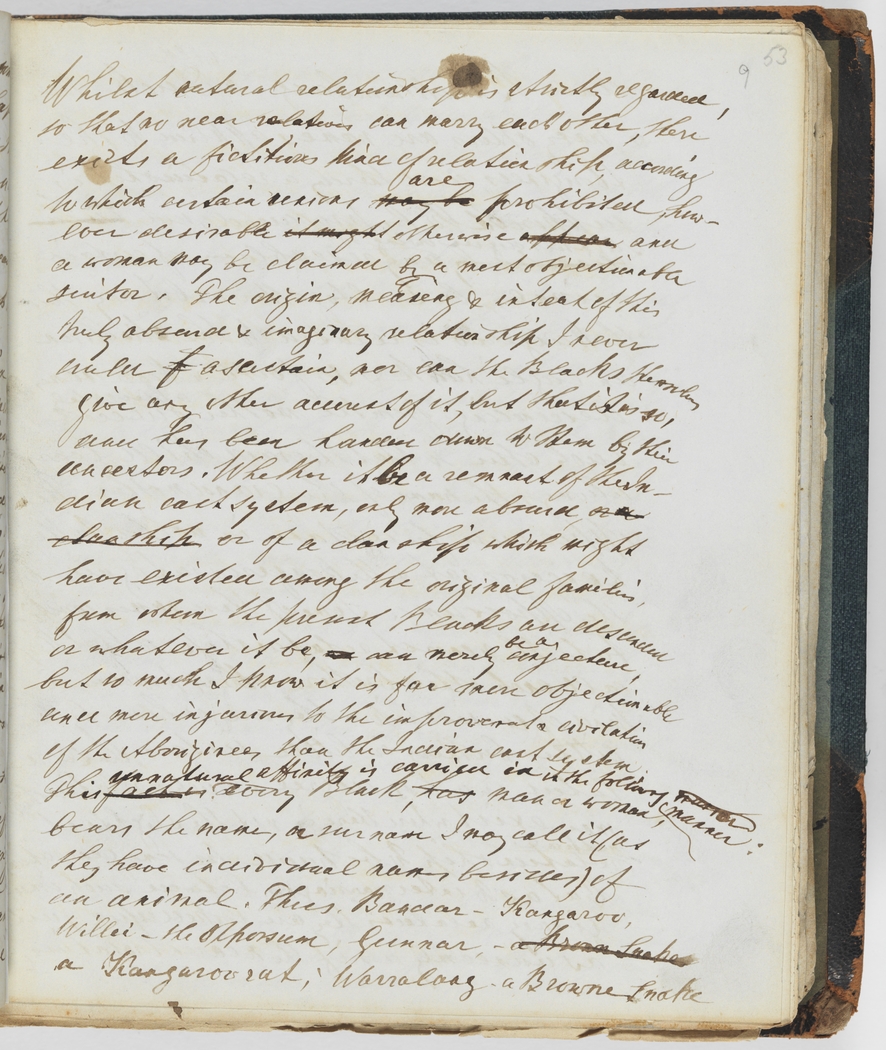 9 53
Whilst natural relationship is strictly regarded,
so that no near relatives can marry each other, there
exists a fictitious kind of relationship, according
are
to which certain unions may be prohibited, how-
ever desirable it might otherwise appear, and
a woman may be claimed by a most objectionable
suitor. The origin, meaning & intent of this
truly absurd & imaginary relationship I never
could ascertain, nor can the Blacks themselves
give any other account of it, but that it is so,
and has been handed down to them by their
ancestors. Whether it be a remnant of the In-
dian cast system, only more absurd, or a
clanship or of a clanship which might
have existed among the original families,
from whom the present Blacks are descended
be a
or whatever it be, can merely conjecture,
but so much I know it is far more objectionable
and more injurious to the improvemt & civilation
of the Aborigines than the Indian cast system
unnatural affinity is carried in it the following manner
This fact is every Black, has man or woman, manner:
bears the name, or surname I may call it (as
they have individual names besides) of
an animal. Thus. Bandar - Kangaroo,
Willei - the Opossum, Gunnar, - a Brown Snake
a Kangaroorat; Warralang - a Browne Snake